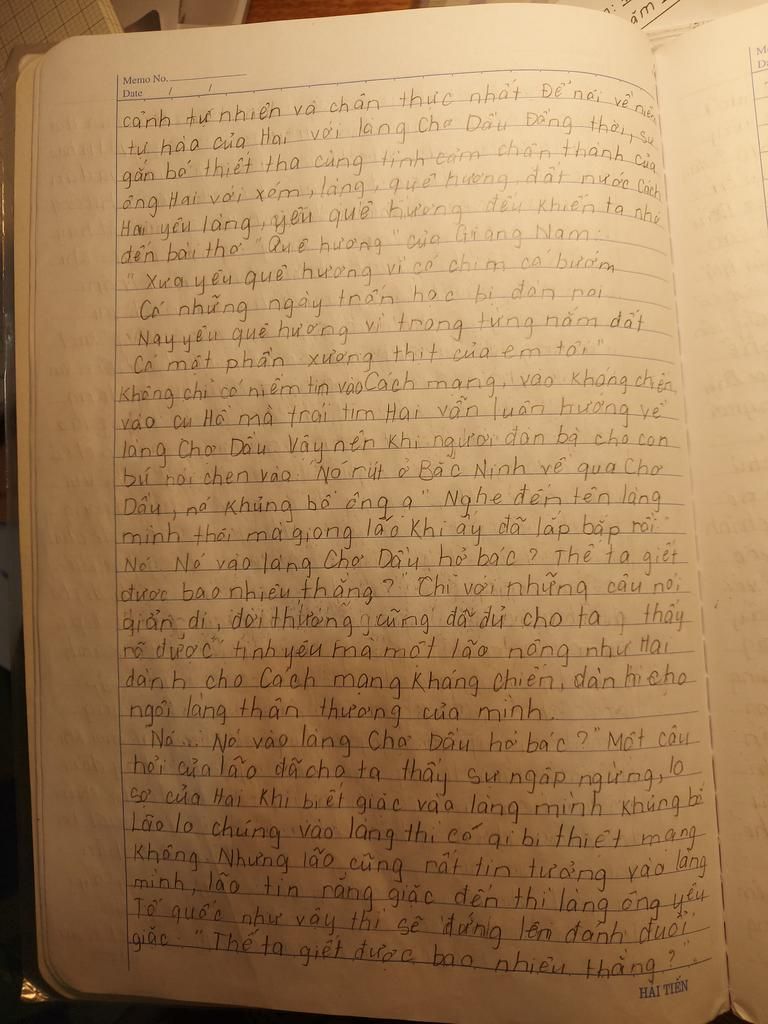 Memo No.
Date / /
cảnh tự nhiên và chân thực nhất Để nói về niềm
tự hào của Hai với làng Chợ Dầu Đồng thời, sự
gắn bó thiết tha cùng tình cảm chân thành của
ông Hai với xóm, làng, quê hương, đất nước Cách
Hai yêu làng, yêu quê hương đều khiến ta nhớ
đến bài thơ "Quê hương" của Giang Nam:
"Xưa yêu quê hương vì có chim có bướm
Có những ngày trốn học bị đòn roi
Nay yêu quê hương vì trong từng nắm đất
Có một phần xương thịt của em tôi"
Không chỉ có niềm tin vào Cách mạng, vào kháng chiến,
vào cụ Hồ mà trái tim Hai vẫn luôn hướng về
làng Chợ Dầu Vậy nên khi người đàn bà cho con
bú nói chen vào "Nó rút ở Bắc Ninh về qua Chợ
Dầu, nó khủng bố ông ạ" Nghe đến tên làng
mình thôi mà giọng lão khi ấy đã lắp bắp rồi
Nó.. Nó vào làng Chợ Dầu hở bác? Thế ta giết
được bao nhiêu thằng?" Chỉ với những câu nói
giản dị, đời thường cũng đã đủ cho ta thấy
rõ được tình yêu mà một lão nông như Hai
dành cho Cách mạng kháng chiến, dành cho
ngôi làng thân thương của mình.
"Nó... Nó vào làng Chợ Dầu hở bác?" Một câu
hỏi của lão đã cho ta thấy sự ngập ngừng, lo
sợ của Hai khi biết giặc vào làng mình khủng bố
Lão lo chúng vào làng thì có gì bị thiệt mạng
không Nhưng lão cũng rất tin tưởng vào làng
mình, lão tin rằng giặc đến thì làng ông yêu
Tổ quốc như vậy thì sẽ đứng lên đánh đuổi
giặc. "Thế ta giết được bao nhiêu thằng?".
HẢI TIẾN